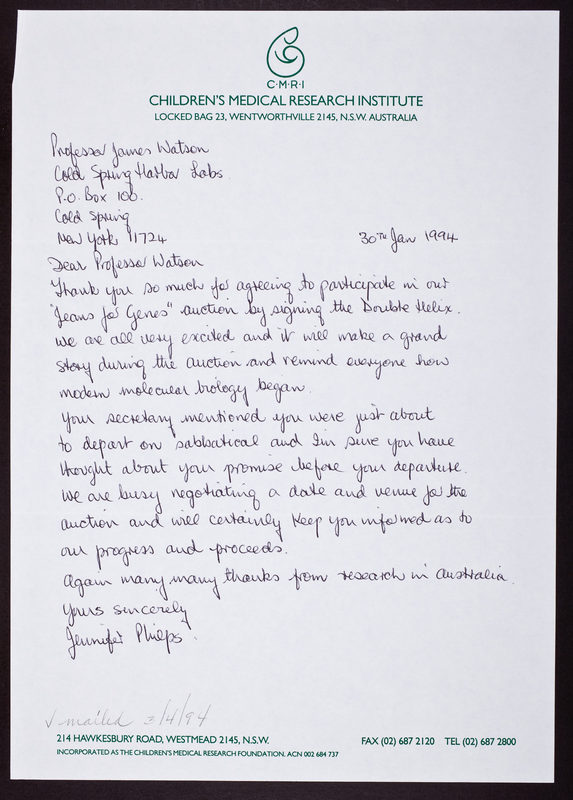 C·M·R·I
CHILDREN'S MEDICAL RESEARCH INSTITUTE
LOCKED BAG 23, WENTWORTHVILLE 2145, N.S.W. AUSTRALIA
Professor James Watson
Cold Spring Harbor Labs.
P.O. Box 100.
Cold Spring
New York 11724
30TH Jan 1994
Dear Professor Watson
Thank you so much for agreeing to participate in our
"Jeans for Genes" auction by signing the Double Helix.
We are all very excited and it will make a grand
story during the auction and remind everyone how
modern molecular biology began.
Your secretary mentioned you were just about
to depart on sabbatical and I'm sure you have
thought about your promise before your departure.
We are busy negotiating a date and venue for the
auction and will certainly keep you informed as to
our progress and proceeds.
Again many many thanks from research in Australia.
Yours sincerely
Jennifer Philps
✓ mailed 3/4/94
214 HAWKESBURY ROAD, WESTMEAD 2145, N.S.W. FAX (02) 687 2120 TEL (02) 687 2800
INCORPORATED AS THE CHILDREN'S MEDICAL RESEARCH FOUNDATION. ACN 002 684 737